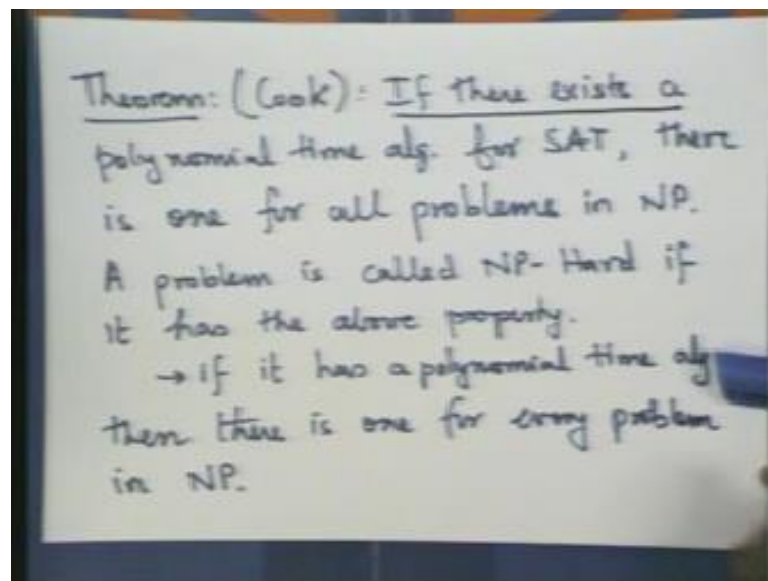 Theorem: (Cook): If there exists a
polynomial time alg. for SAT, there
is one for all problems in NP.
A problem is called NP-Hard if
it has the above property.
→ if it has a polynomial time alg
then there is one for every problem
in NP.